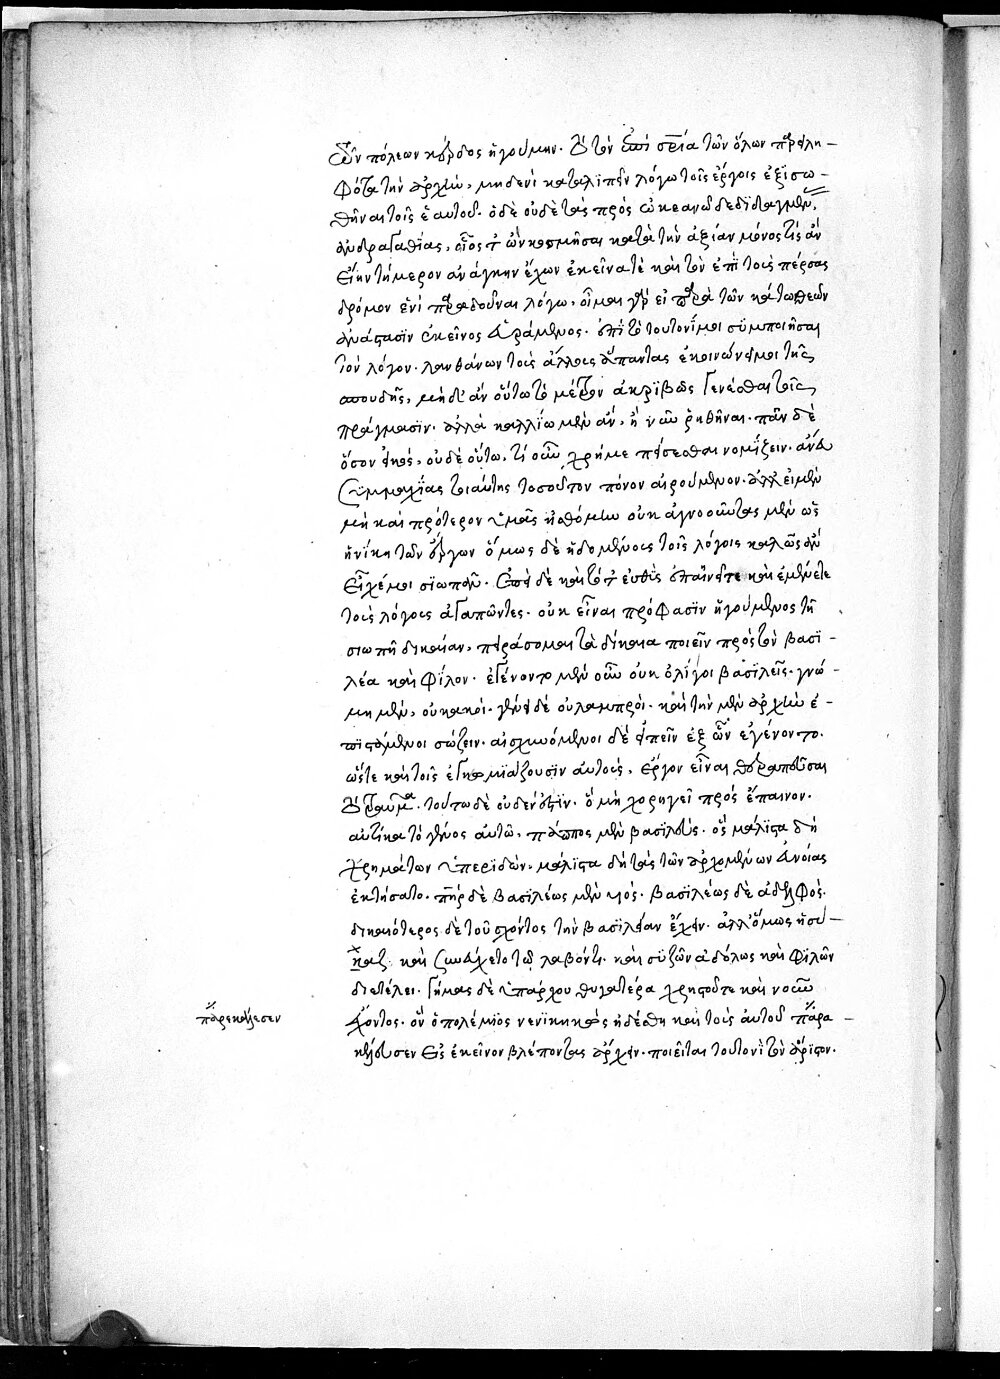 ὧν πόλεων κέρδος ἡγούμην. τὸν ἐπὶ σωτηρία τῶν ὅλων παρειλη-
φότα τὴν ἀρχὴν, μηδενὶ καταλιπεῖν λόγω τοῖς ἔργοις ἐξισω-
θῆναι τοῖς ἑαυτοῦ. ὁ δὲ οὐδὲ τὰς πρὸς ὠκεανῶ δεδιδαγμέν.
ἀνδραγαθίας, οἷός τ' ὢν κοσμῆσαι κατὰ τὴν ἀξίαν μόνος τίς ἂν
εἴην τήμερον ἀνάγκην ἔχων ἐκεῖνα τὲ καὶ τὸν ἐπὶ τοὺς πέρσας
δρόμον ἑνὶ παραδοῦναι λόγω. οἶμαι γὰρ εἰ παρὰ τῶν κάτω θεῶν
ἀνάστασιν ἐκεῖνος ἀράμενος. ἐπὶ τὸ τουτονί μοι συμποιῆσαι
τὸν λόγον. λανθάνων τοὺς ἄλλους ἅπαντας ἐκοινώνει μοι τῆς
σπουδῆς, μὴ δ' ἂν οὕτω τὸ μέτρον ἀκριβῶς γενέσθαι τοῖς
πράγμασιν. ἀλλὰ καλλίω μὲν ἂν, ἢ νῦν ῥηθῆναι. πᾶν δὲ
ὅσον εἰκός, οὐδὲ οὕτω, τί οὖν χρή με πείσεσθαι νομίζειν. ἄνευ
συμμαχίας τοιαύτης τοσοῦτον πόνον αἰρούμενον. ἀλλ' εἰ μὲν
μὴ καὶ πρότερον ὑμᾶς ἠσθόμην οὐκ ἀγνοοῦντας μὲν ὡς
ἡ νίκη τῶν ἔργων ὅμως δὲ ἡδομένους τοῖς λόγοις καλῶς ἂν
εἶχέ μοι σιωπᾶν. ἐπεὶ δὲ καὶ τότ' εὐθὺς ἐπαινεῖτε καὶ ἐμένετε
τοὺς λόγους ἀγαπῶντες. οὐκ εἶναι πρόφασιν ἡγούμενος τῆ
σιωπῆ δικαίαν, πειράσομαι τὰ δίκαια ποιεῖν πρὸς τὸν βασι-
λέα καὶ φίλον. ἐγένοντο μὲν οὖν οὐκ ὀλίγοι βασιλεῖς. γνώ-
μη μὲν, οὐ κακοί. γένει δὲ οὐ λαμπροί. καὶ τὴν μὲν ἀρχὴν ἐ-
πιστάμενοι σώζειν. αἰσχυνόμενοι δὲ εἰπεῖν ἐξ ὧν ἐγένοντο.
ὥστε καὶ τοῖς ἐγκωμιάζουσιν αὐτούς, ἔργον εἶναι θεραπεῦσαι
τὸ τραῦμα. τούτω δὲ οὐδέν ἐστιν. ὃ μὴ χορηγεῖ πρὸς ἔπαινον.
αὐτίκα τὸ γένος αὐτῶ, πάππος μὲν βασιλεύς. ὃς μάλιστα δὴ
χρημάτων ὑπεριδὼν, μάλιστα δὴ τὰς τῶν ἀρχομένων εὐνοίας
ἐκτήσατο. πατὴρ δὲ βασιλέως μὲν υἱός. βασιλέως δὲ ἀδελφός.
δικαιότερος δὲ τοῦ σχόντος τὴν βασιλείαν ἔχειν. ἀλλ' ὅμως ἡσύ-
χαζε καὶ συνείχετο τῶ λαβόντι. καὶ συζῶν ἀδόλως καὶ φιλῶν
διετέλει. γήμας δὲ ὑπάρχου θυγατέρα χρηστοῦ τε καὶ νοῦν
πάρεκάλεσεν
ἔχοντος. ὃν ὁ πολέμιος νενικηκὼς ἠδέσθη καὶ τοὺς αὐτοῦ πάρα-
κελεύσεν εἰς ἐκεῖνον βλέποντας ἄρχειν. ποιεῖται τουτονὶ τὸν ἄριστον.